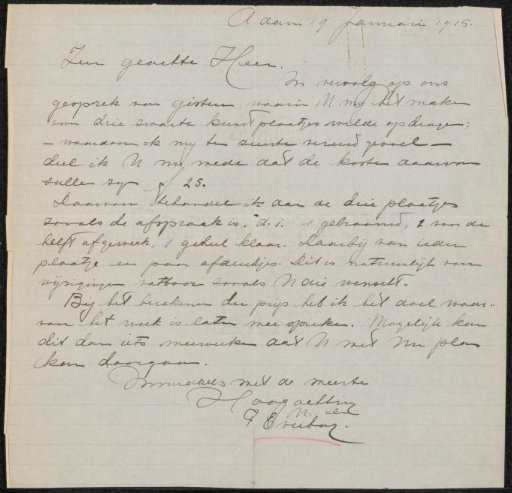 A dam 19 Januari 1915.
Zeer geachte Heer.
In vervolg op ons
gesprek van gisteren, waarin U mij het maken
van drie zwarte kunst plaatjes wilde opdragen;
– waarvan ik my ten zeerste vereerd gevoel –
deel ik U nu mede dat de kosten daarvan
zullen zyn ƒ 25.
Daarvan behandel ik dan de drie plaatjes
zooals de afspraak is. d.i. 1 gebraamd, 1 van de
helft afgewerkt, 1 geheel klaar. Daarbij van ieder
plaatje een paar afdrukjes. Dit is natuurlijk voor
wijzigingen vatbaar zooals U die wenscht.
Bij het berekenen der prijs heb ik het doel waar-
van het werk is laten mee spreken. Mogelijk kan
dit dan iets meewerken dat U met Uw plan
kan doorgaan.
Inmiddels met de meeste
Hoogachting